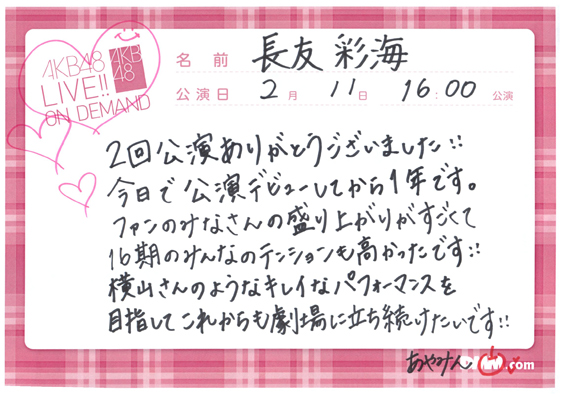 AKB48
LIVE!!
ON DEMAND
AKB
48
名前 長友 彩海
公演日 2月 11日 16:00 公演
2回公演ありがとうございました!!
今日で公演デビューしてから1年です。
ファンのみなさんの盛り上がりがすごくて
16期のみんなのテンションも高かったです!!
横山さんのようなキレイなパフォーマンスを
目指してこれからも劇場に立ち続けたいです!!
あやみん
.com